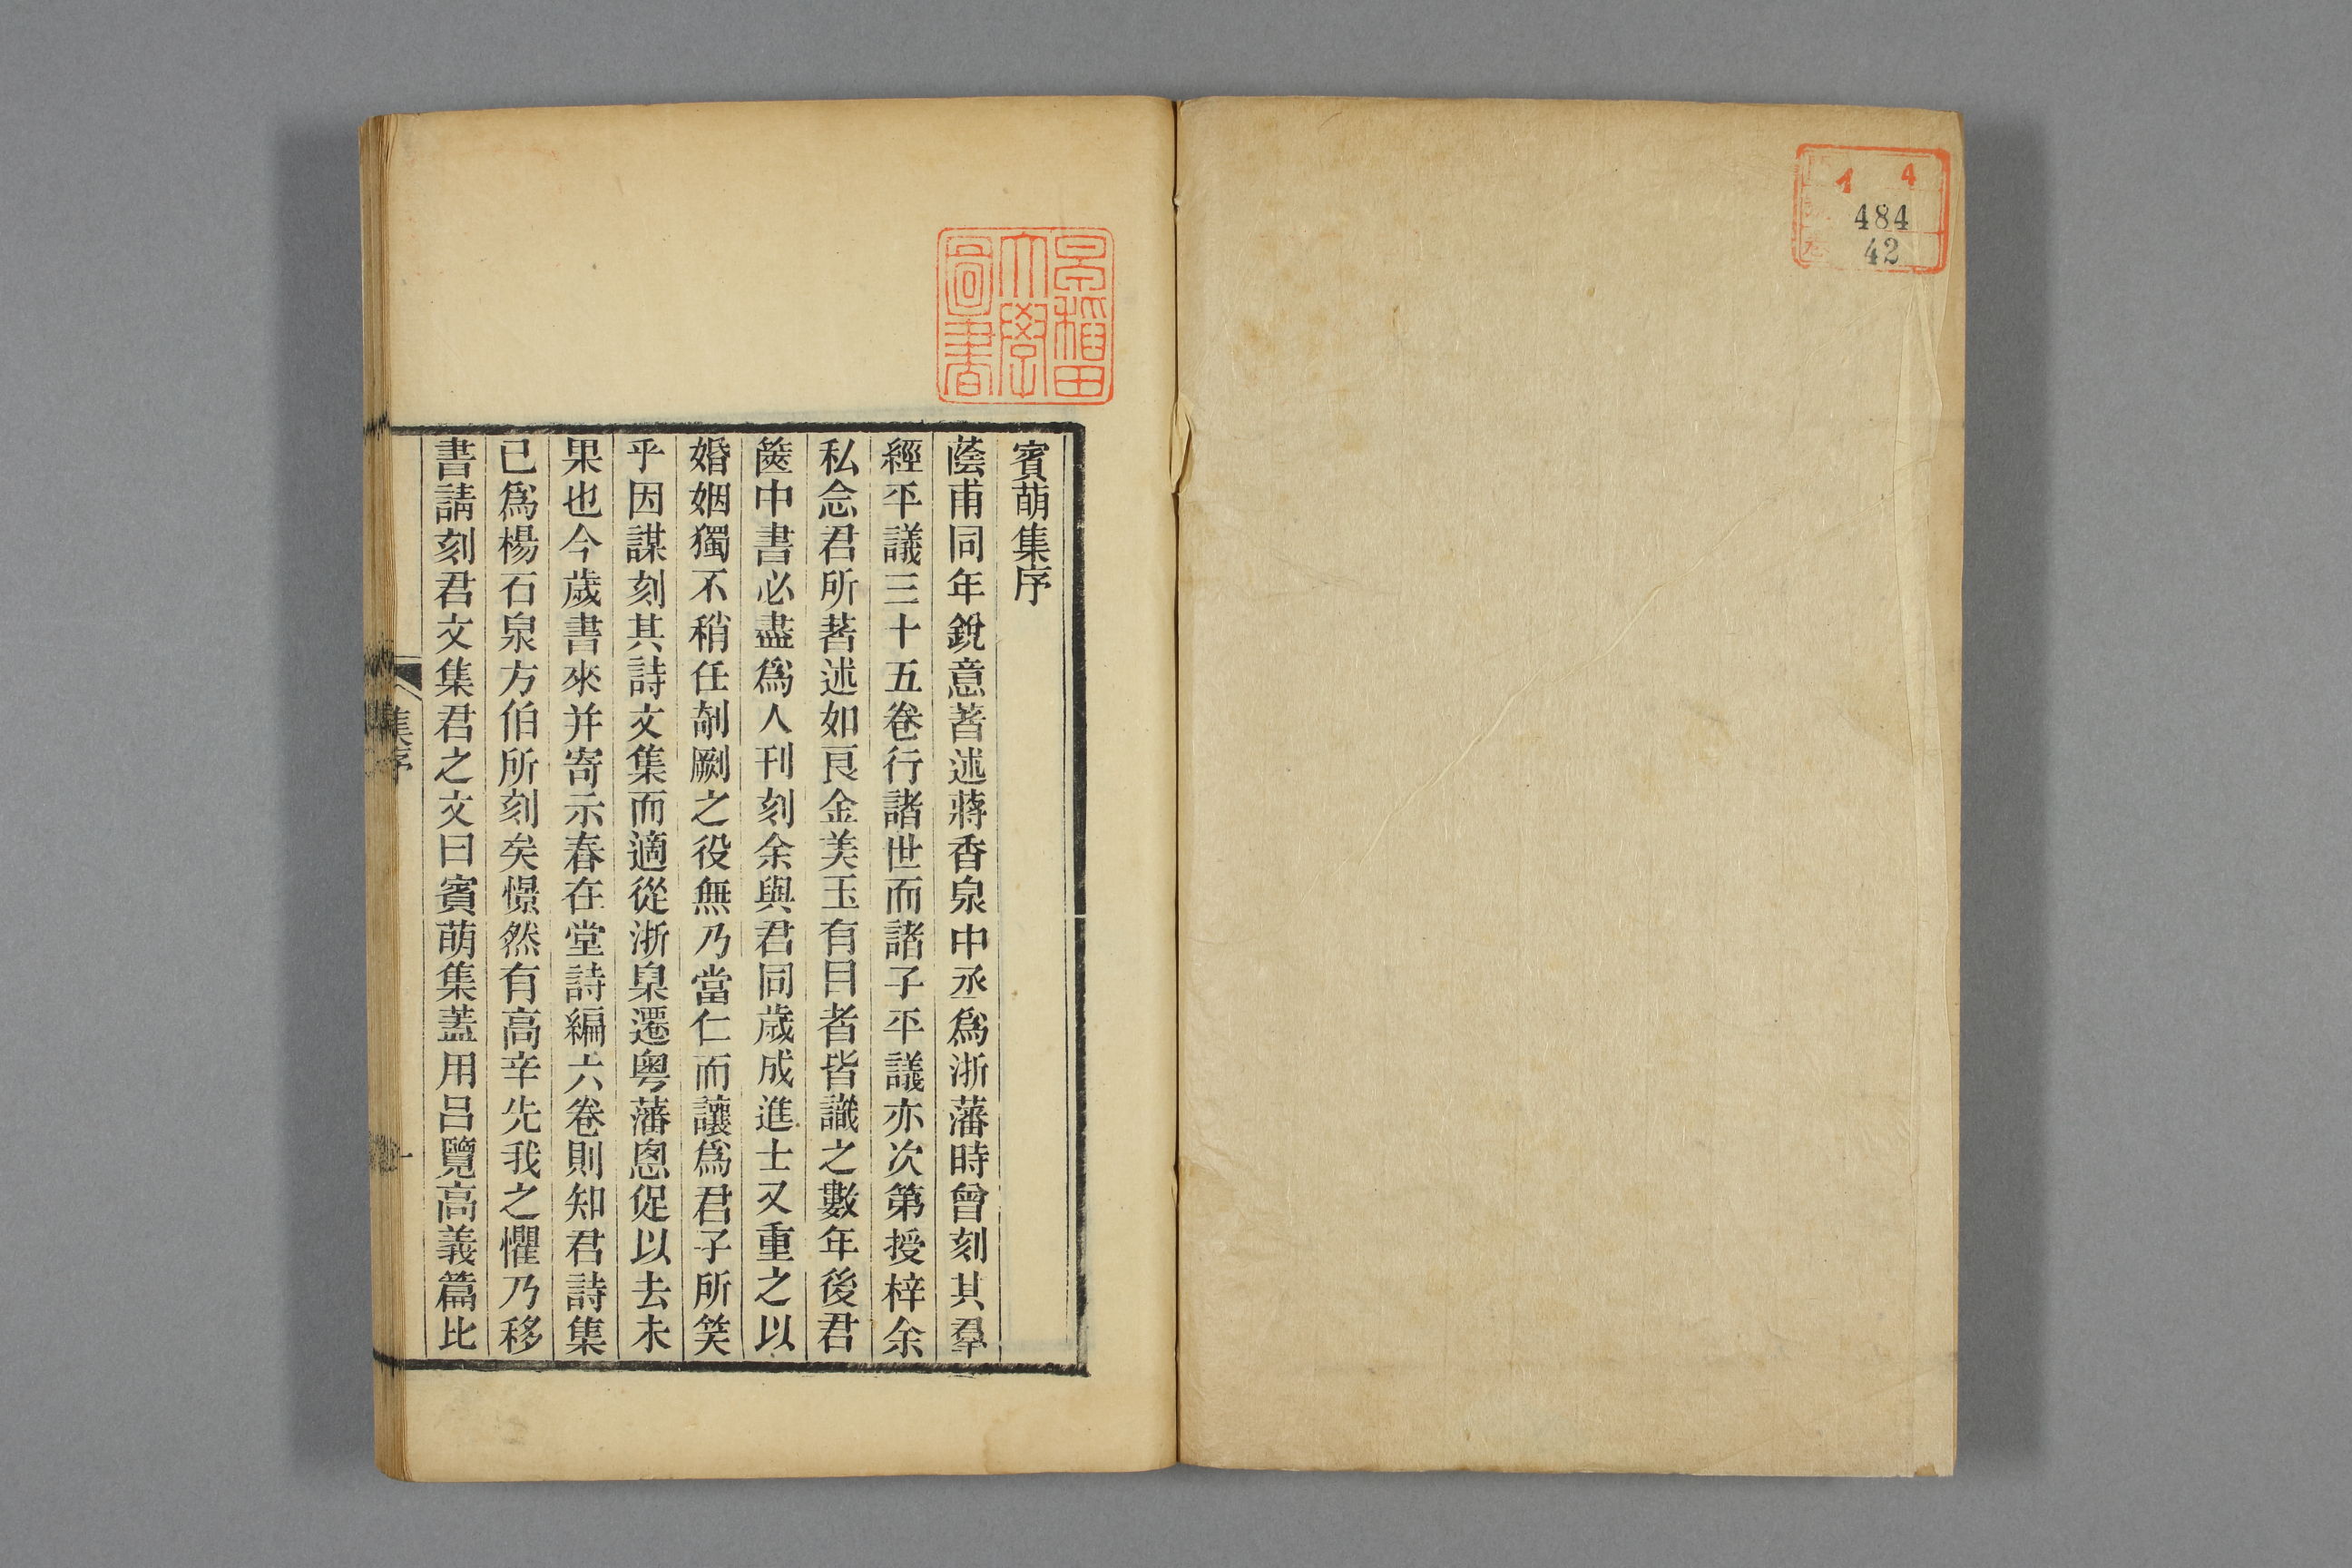 4 1
484
42
早稲田
大學
圖書
賓萌集序
蔭甫同年銳意著述蔣香泉中丞爲浙藩時曾刻其羣
經平議三十五卷行諸世而諸子平議亦次第授梓余
私念君所著述如良金美玉有目者皆識之數年後君
篋中書必盡爲人刊刻余與君同歲成進士又重之以
婚姻獨不稍任剞劂之役無乃當仁而讓爲君子所笑
乎因謀刻其詩文集而適從浙臬遷粤藩恩促以去未
果也今歲書來并寄示春在堂詩編六卷則知君詩集
已爲楊石泉方伯所刻矣憬然有高辛先我之懼乃移
書請刻君文集君之文曰賓萌集蓋用呂覽高義篇比
集序
一